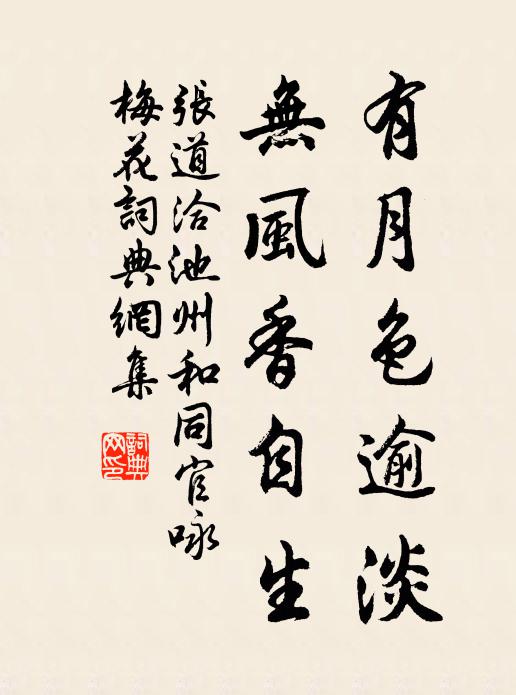 有月色逾淡
無風香自生
張道洽池州和同官咏
梅花詞典網集
詞典
网印